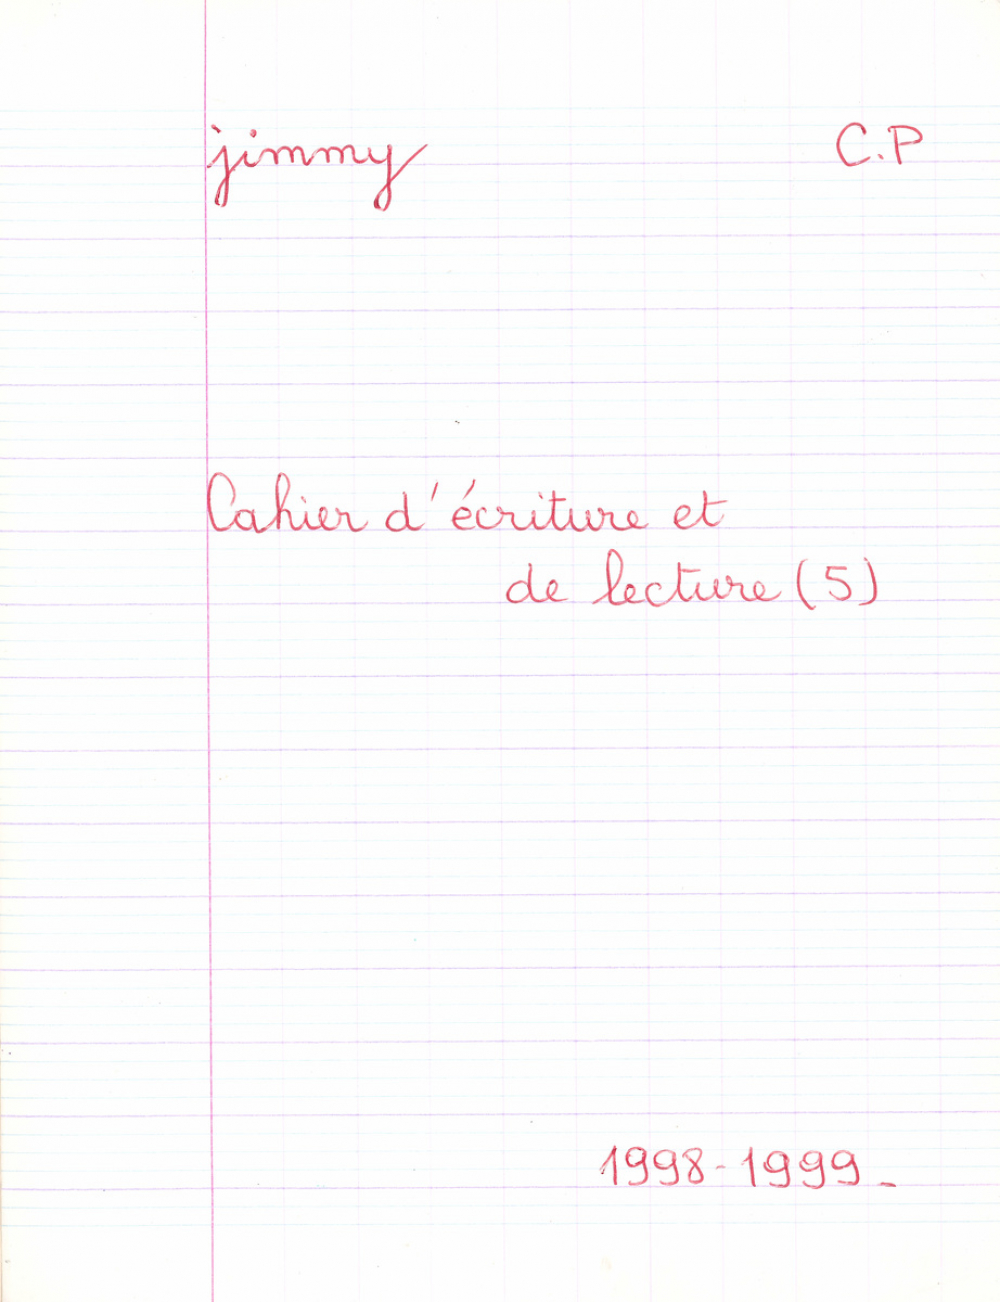 jimmy C.P
Cahier d'écriture et
de lecture (5)
1998-1999_